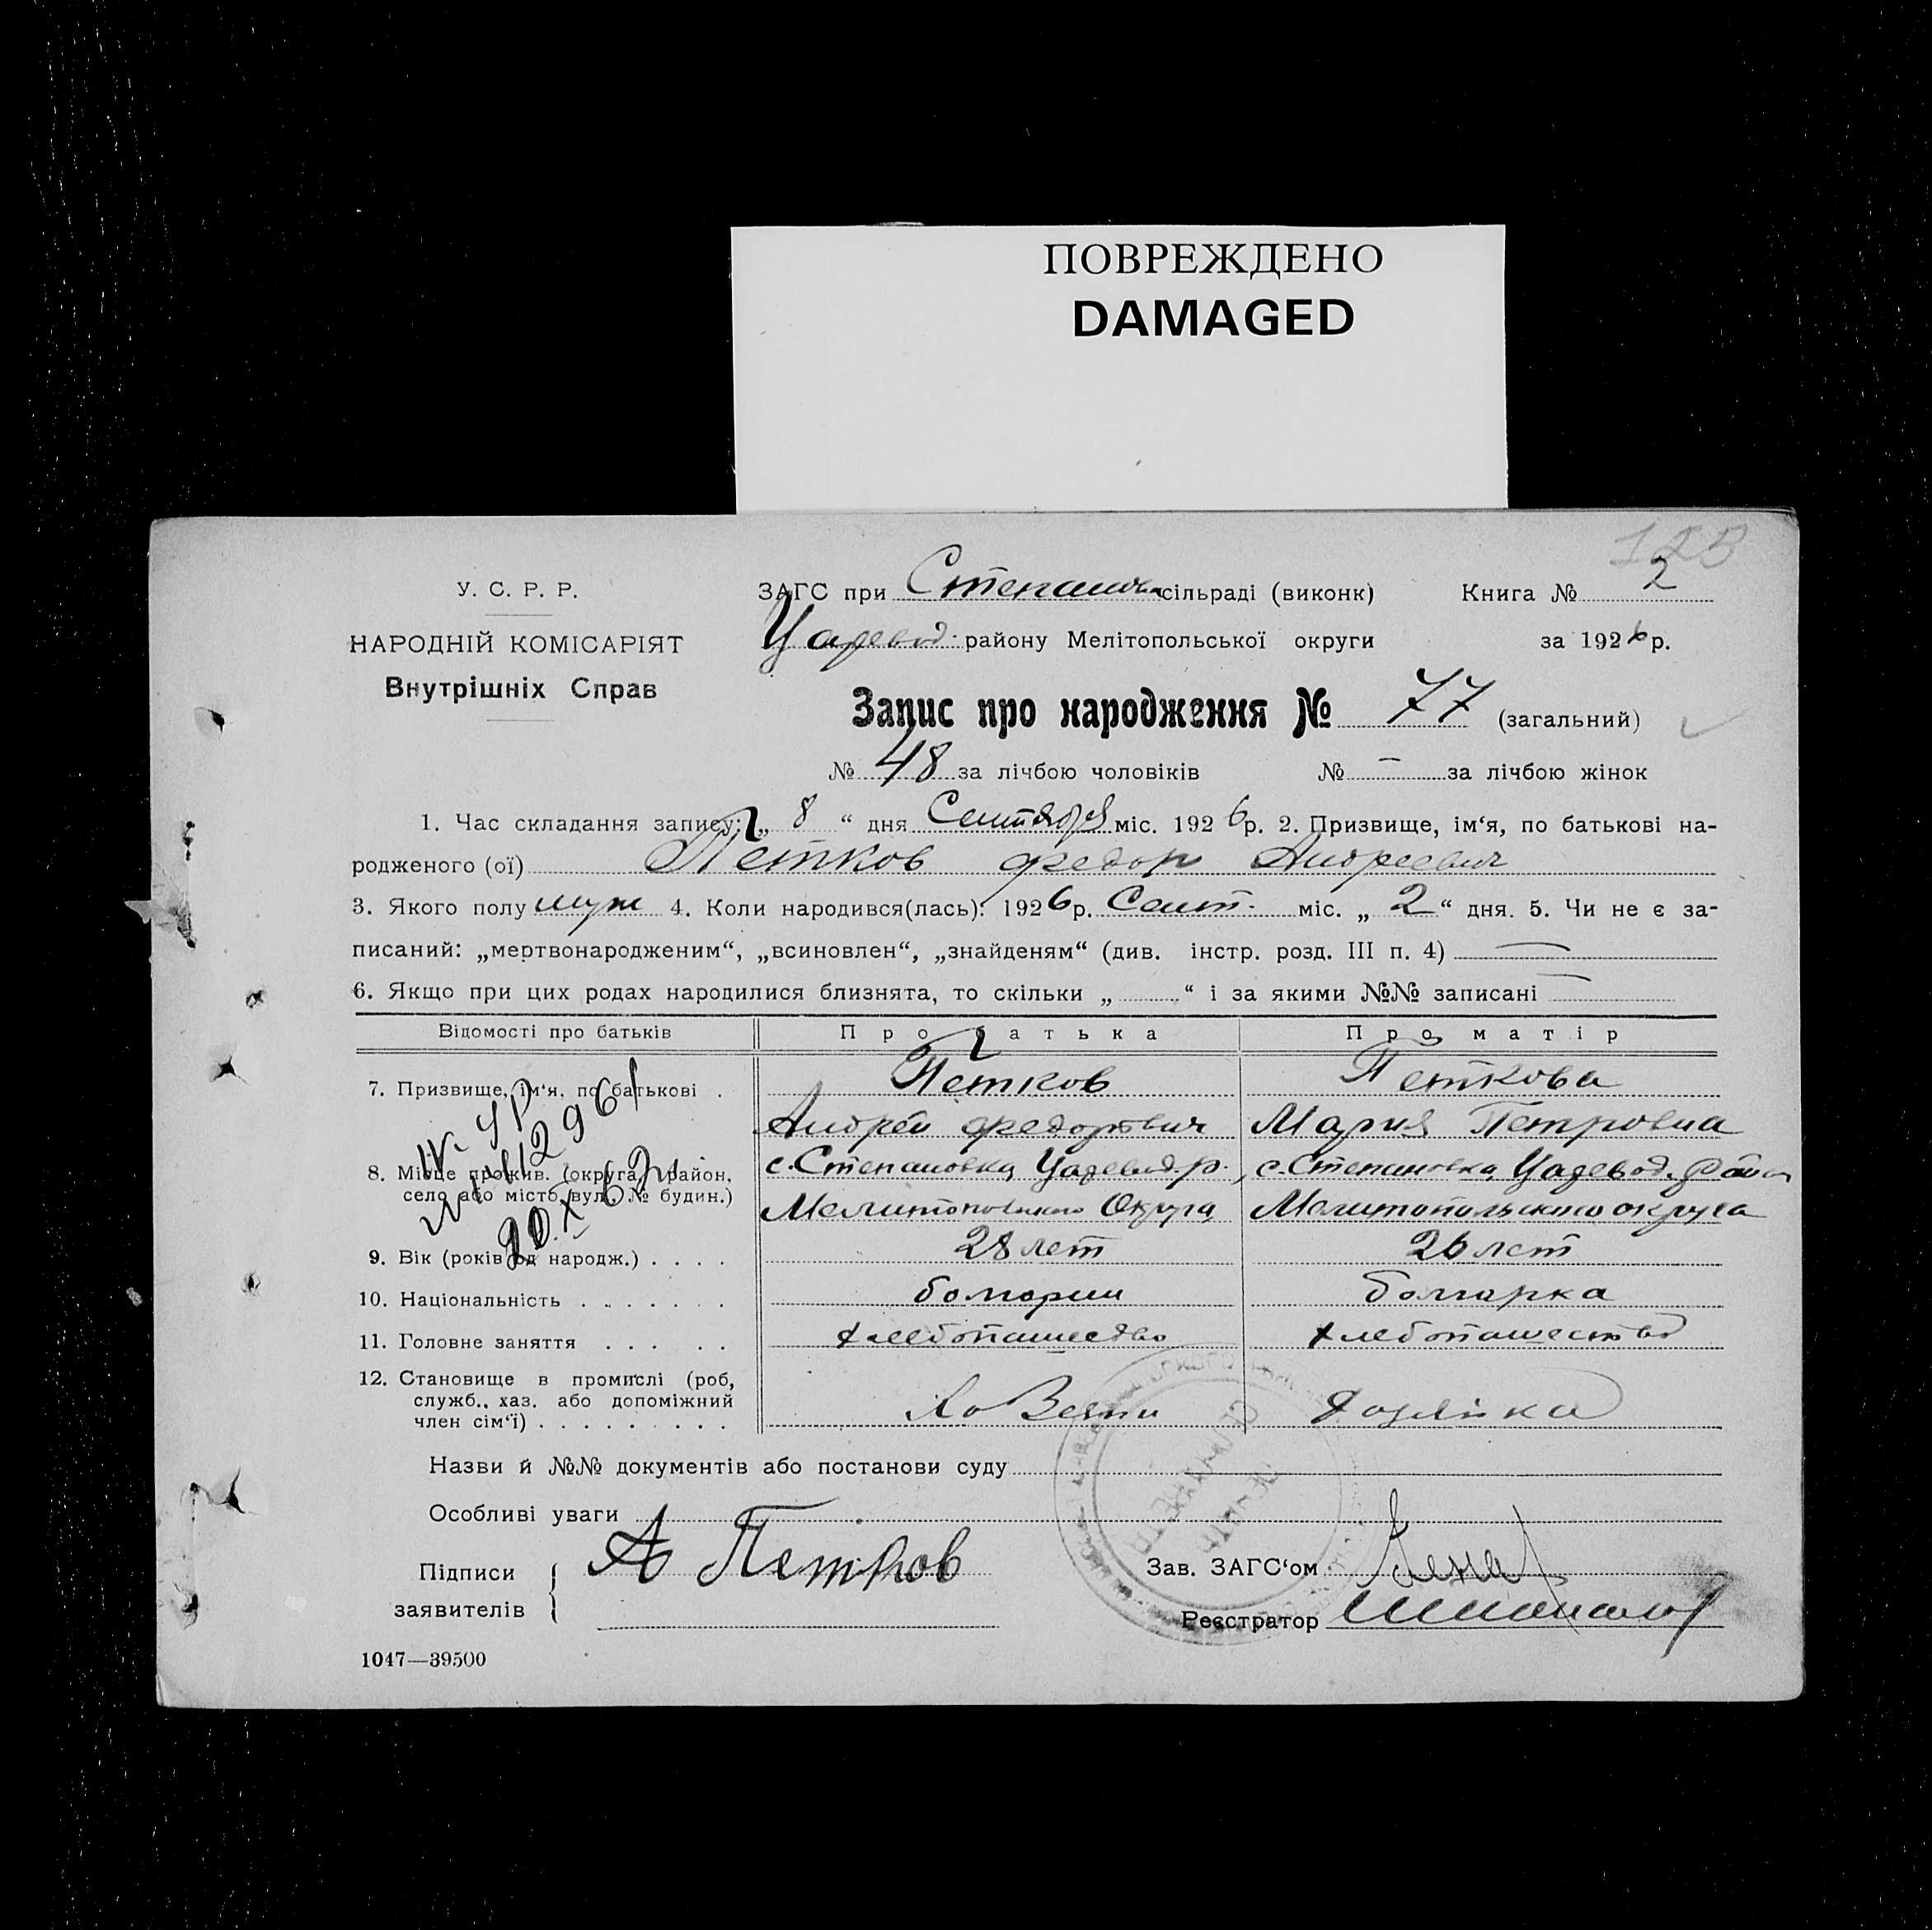 ПОВРЕЖДЕНО
DAMAGED
123
У. С. Р. Р.
НАРОДНІЙ КОМІСАРІЯТ
Внутрішніх Справ
ЗАГС при Степановск сільраді (виконк) Книга № 2
Царевод. району Мелітопольської округи за 1926 р.
Запис про народження № 77 (загальний)
№ 48 за лічбою чоловіків № — за лічбою жінок
1. Час складання запису: „ 8 “ дня Сентября міс. 1926 р. 2. Призвище, ім‘я, по батькові на-
родженого (ої) Петков Федор Андреевич
3. Якого полу муж 4. Коли народився(лась): 1926 р. Сент. міс. „ 2 “ дня. 5. Чи не є за-
писаний: „мертвонародженим“, „всиновлен“, „знайденям“ (див. інстр. розд. III п. 4) —
6. Якщо при цих родах народилися близнята, то скільки „ “ і за якими №№ записані —
Відомості про батьків Про батька Про матір
7. Призвище, ім‘я, по батькові . Петков Петкова
Андрей Федорович Мария Петровна
8. Місце прожив. (округа, район, с. Степановка, Царевод. р. с. Степановка, Царевод. район
село або місто, вул. № будин.) Мелитопольского Округа Мелитопольского округа
9. Вік (років од народж.) . . . . 28 лет 26 лет
10. Національність . . . . . . . болгарин болгарка
11. Головне заняття . . . . . хлебопашество хлебопашество
12. Становище в промислі (роб,
служб., хаз. або допоміжний
член сім‘ї) . . . . . . . . .
Назви й №№ документів або постанови суду
Особливі уваги
Підписи А Петков Зав. ЗАГС‘ом
заявителів Реєстратор
1047—39500